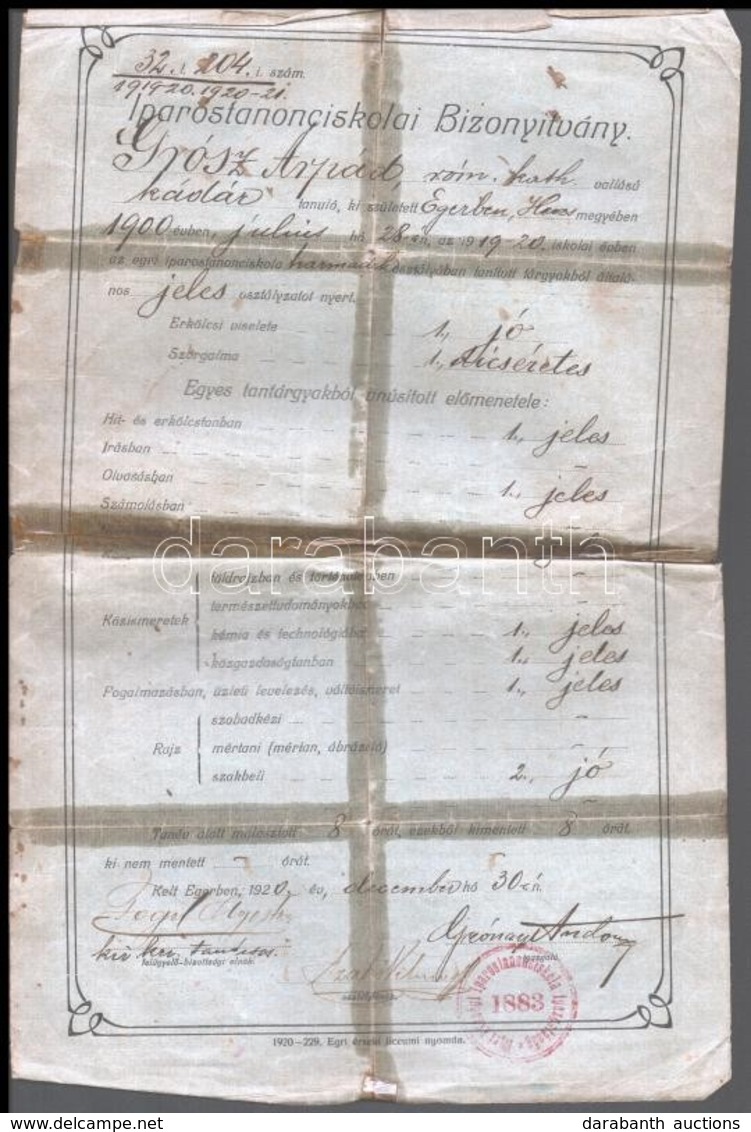 32. l. 204. t. szám.
1919-20. 1920-21.
Iparostanonciskolai Bizonyitvány.
Grósz Árpád, róm. kath. vallású
kádár tanuló, ki született Egerben, Heves megyében
1900 évben, július hó 28-án, az 1919-20. iskolai évben
az egri iparostanonciskola harmadik osztályában tanitott tárgyakból általá-
nos jeles osztályzatot nyert.
Erkölcsi viselete 1., jó
Szorgalma 1., dicséretes
Egyes tantárgyakból tanúsított előmenetele:
Hit- és erkölcstanban 1., jeles
Irásban "
Olvasásban 1., jeles
Számolásban
darabanth
földrajzban és történelemben
természettudományokban "
Közismeretek
kémia és technológiában 1., jeles
közgazdaságtanban 1., jeles
Fogalmazásban, üzleti levelezés, váltóismeret 1., jeles
szabadkézi "
Rajz mértani (mértan, ábrázoló) "
szakbeli 2., jó
Tanév alatt mulasztott 8 órát, ezekből kimentett 8 órát.
ki nem mentett - órát.
Kelt Egerben, 1920 év, december hó 30-án.
kir. ker. tanácsos.
felügyelő-bizottsági elnök.
igazgató.
osztályfő.
1883
1920—229. Egri érseki liceumi nyomda.
darabanth auctions